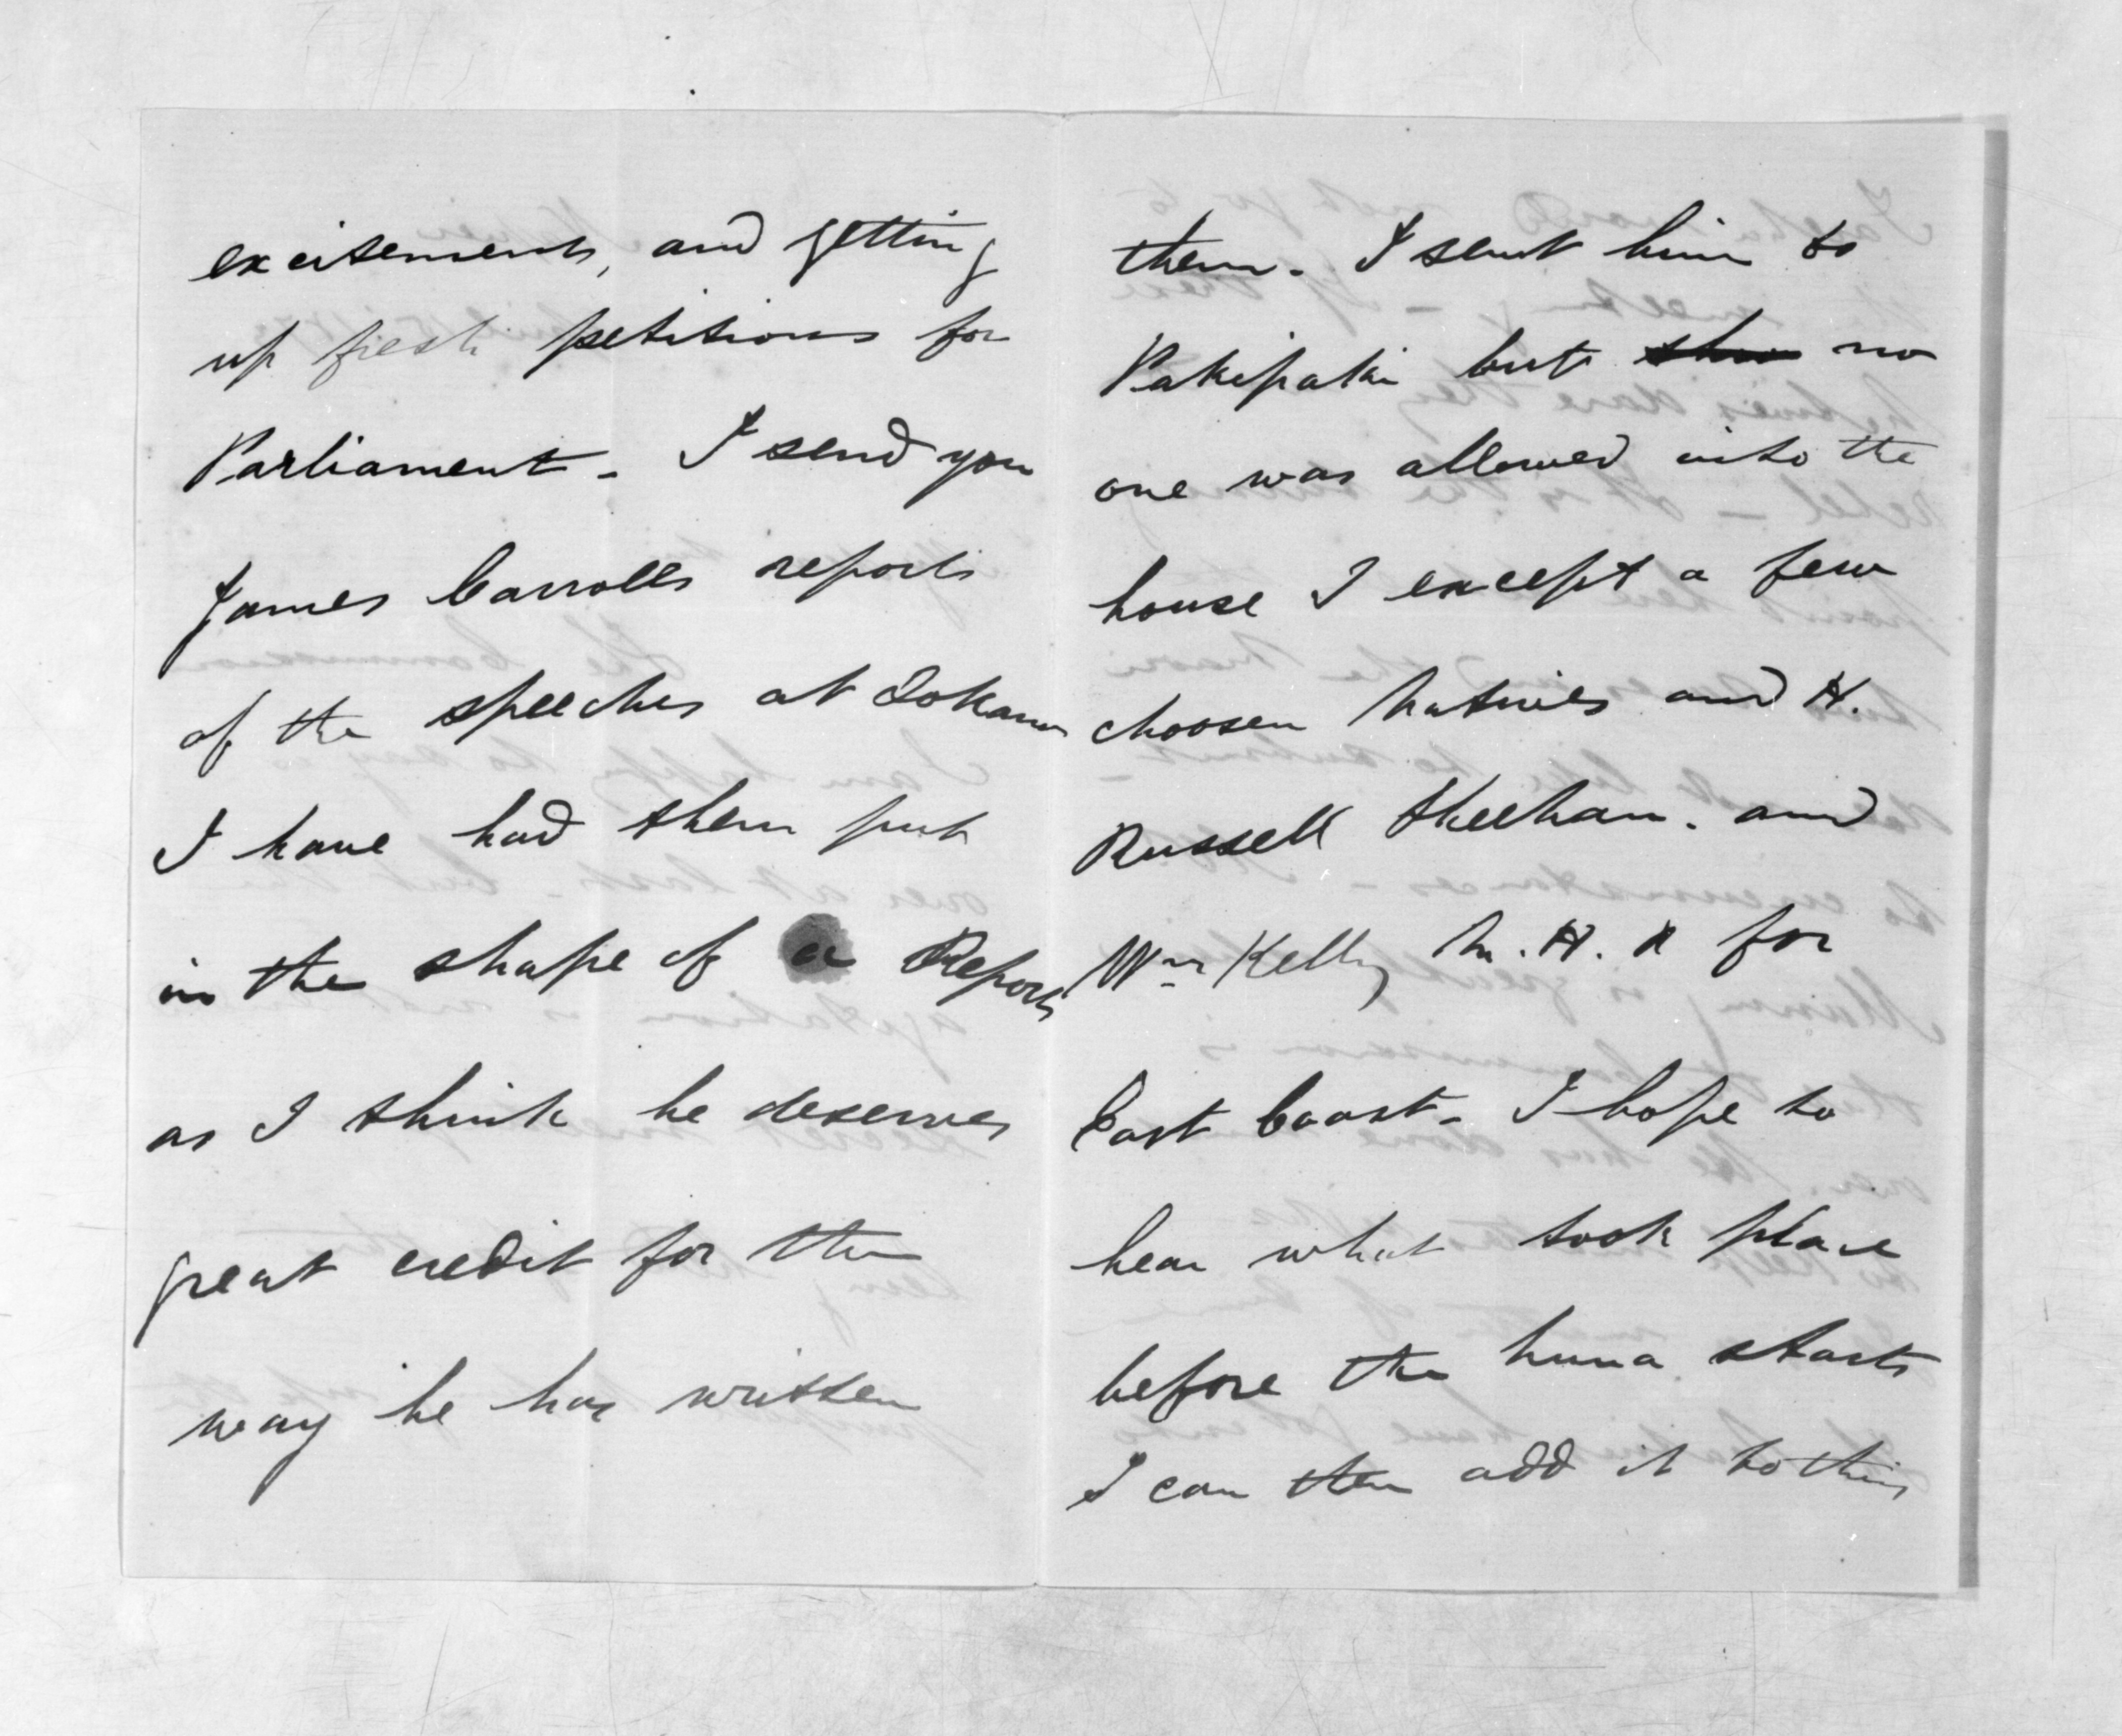 excitements, and getting
up fresh petitions for
Parliament - I send you
James Carrolls reports
of the speeches at
I have had them put
in the shape of a Report
as I think he deserves
great credit for the
way he has written
them - I sent him to
Pakipaki but no
one was allowed into the
house I except a few
choosen Natives and H.
Russell Sheehan. and
Wm Kelly M. H. R for
East Coast - I hope to
hear what took place
before the huna starts
I can then add it to this